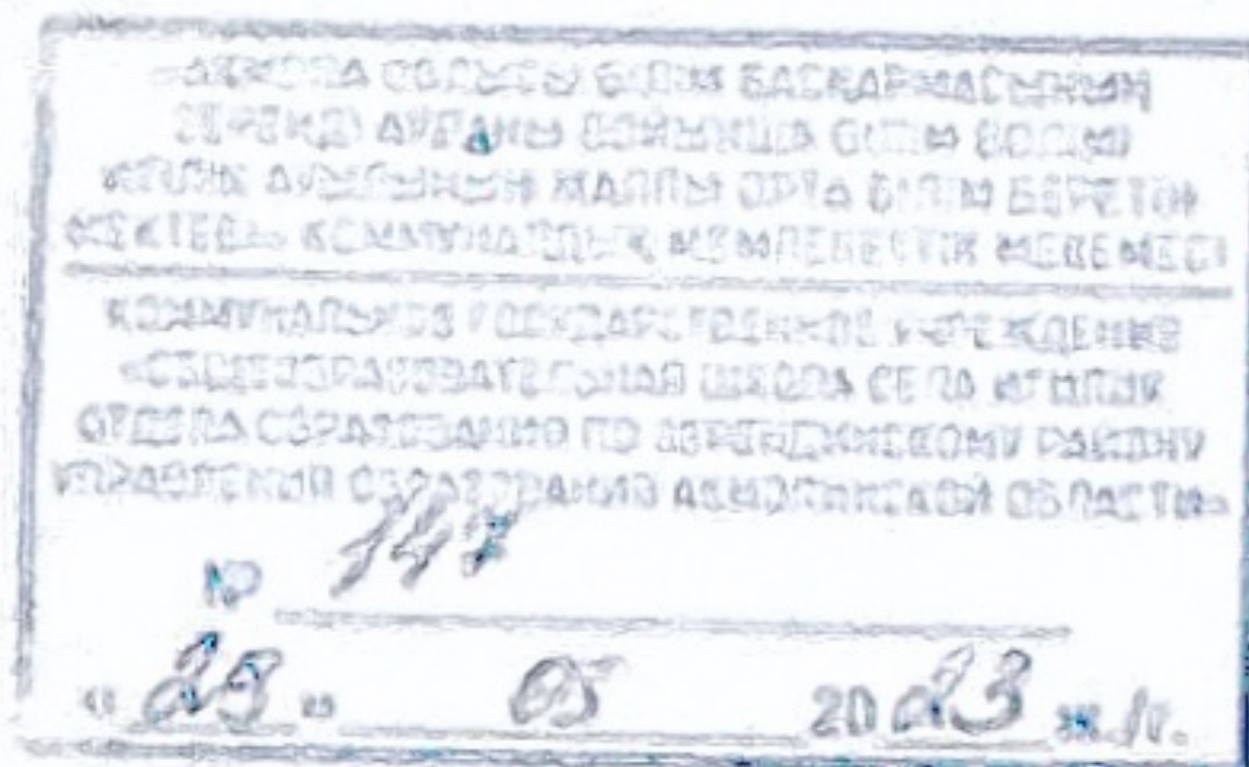 АҚМОЛА ОБЛЫСЫ БІЛІМ БАСҚАРМАСЫНЫҢ
АУДАНЫ БОЙЫНША БІЛІМ БӨЛІМІ
АУЫЛЫНЫҢ ЖАЛПЫ ОРТА БІЛІМ БЕРЕТІН
МЕКТЕБІ» КОММУНАЛДЫҚ МЕМЛЕКЕТТІК МЕКЕМЕСІ
КОММУНАЛЬНОЕ ГОСУДАРСТВЕННОЕ УЧРЕЖДЕНИЕ
«ОБЩЕОБРАЗОВАТЕЛЬНАЯ ШКОЛА СЕЛА
ОТДЕЛА ОБРАЗОВАНИЯ ПО ЗЕРЕНДИНСКОМУ РАЙОНУ
УПРАВЛЕНИЯ ОБРАЗОВАНИЯ АКМОЛИНСКОЙ ОБЛАСТИ»
№ 147
« » 05 2023 ж./г.